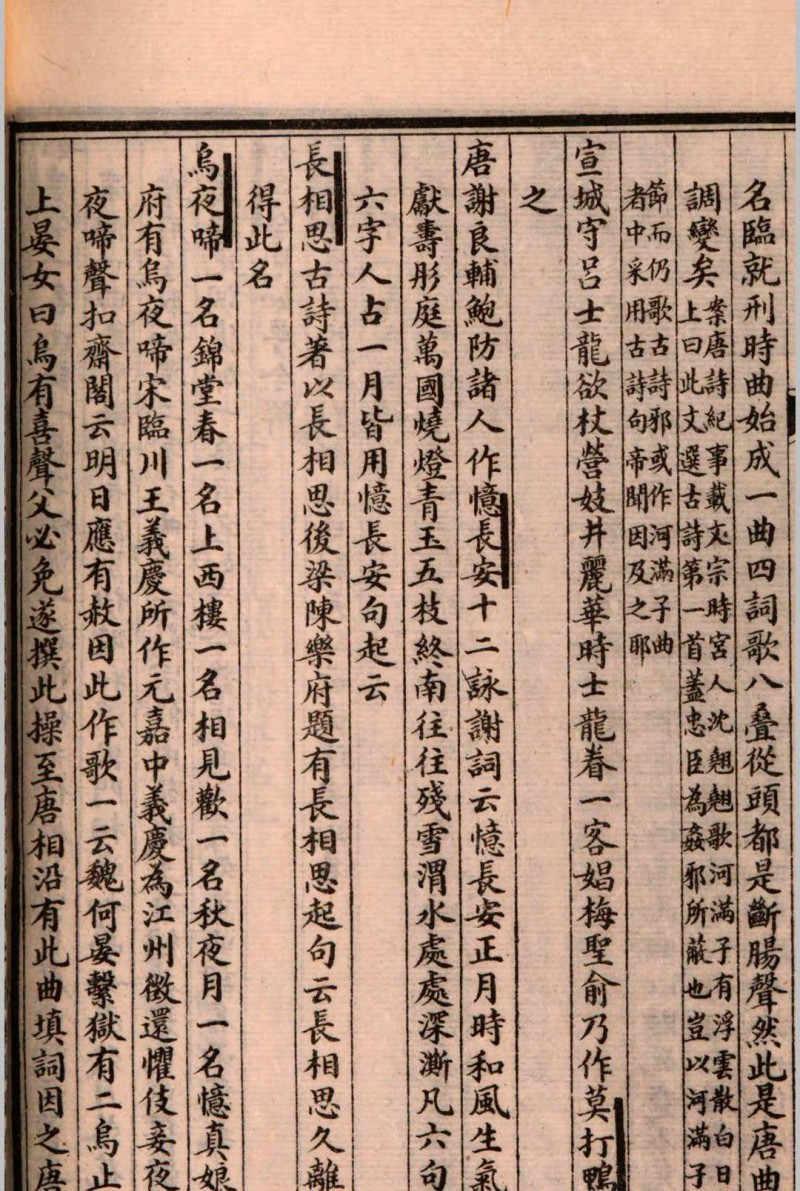 名臨就刑時曲始成一曲四詞歌八疊從頭都是斷腸聲然此是唐曲
調變矣
案唐詩紀事載文宗時宮人沈翹翹歌河滿子有浮雲散白日
上曰此文選古詩第一首蓋忠臣為姦邪所蔽也豈以河滿子
節而仍歌古詩邪或作河滿子曲
者中采用古詩句帝聞因及之耶
宣城守呂士龍欲杖營妓井麗華時士龍眷一客娼梅聖俞乃作莫打鴨
之
唐謝良輔鮑防諸人作憶長安十二詠謝詞云憶長安正月時和風生氣
獻壽彤庭萬國燒燈青玉五枝終南往往殘雪渭水處處深澌凡六句
六字人占一月皆用憶長安句起云
長相思古詩著以長相思後梁陳樂府題有長相思起句云長相思久離
得此名
烏夜啼一名錦堂春一名上西樓一名相見歡一名秋夜月一名憶真娘
府有烏夜啼宋臨川王義慶所作元嘉中義慶為江州徵還懼伎妾夜
夜啼聲扣齋閤云明日應有赦因此作歌一云魏何晏繫獄有二烏止
上晏女曰烏有喜聲父必免遂撰此操至唐相沿有此曲填詞因之唐